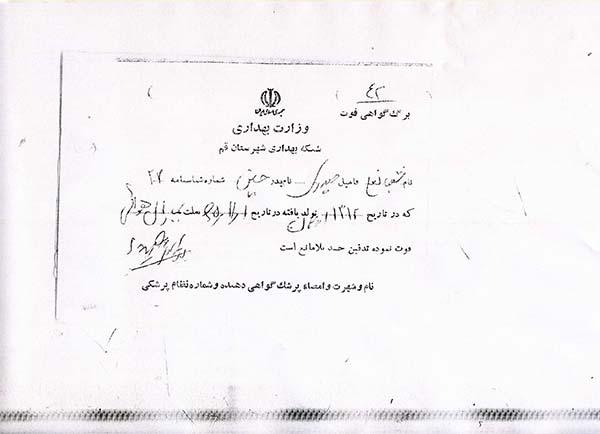 ۴۲
برگ گواهی فوت
جمهوری اسلامی ایران
وزارت بهداری
شبکه بهداری شهرستان قم
نام شعبانعلی فامیل حیدری نام پدر شماره شناسنامه ۲۰۲
که در تاریخ ۱۳۱۲ تولد یافته در تاریخ بعلت بمباران هوائی
فوت نموده تدفین جسد بلامانع است
نام و شهرت و امضاء پزشك گواهی دهنده و شماره نظام پزشکی